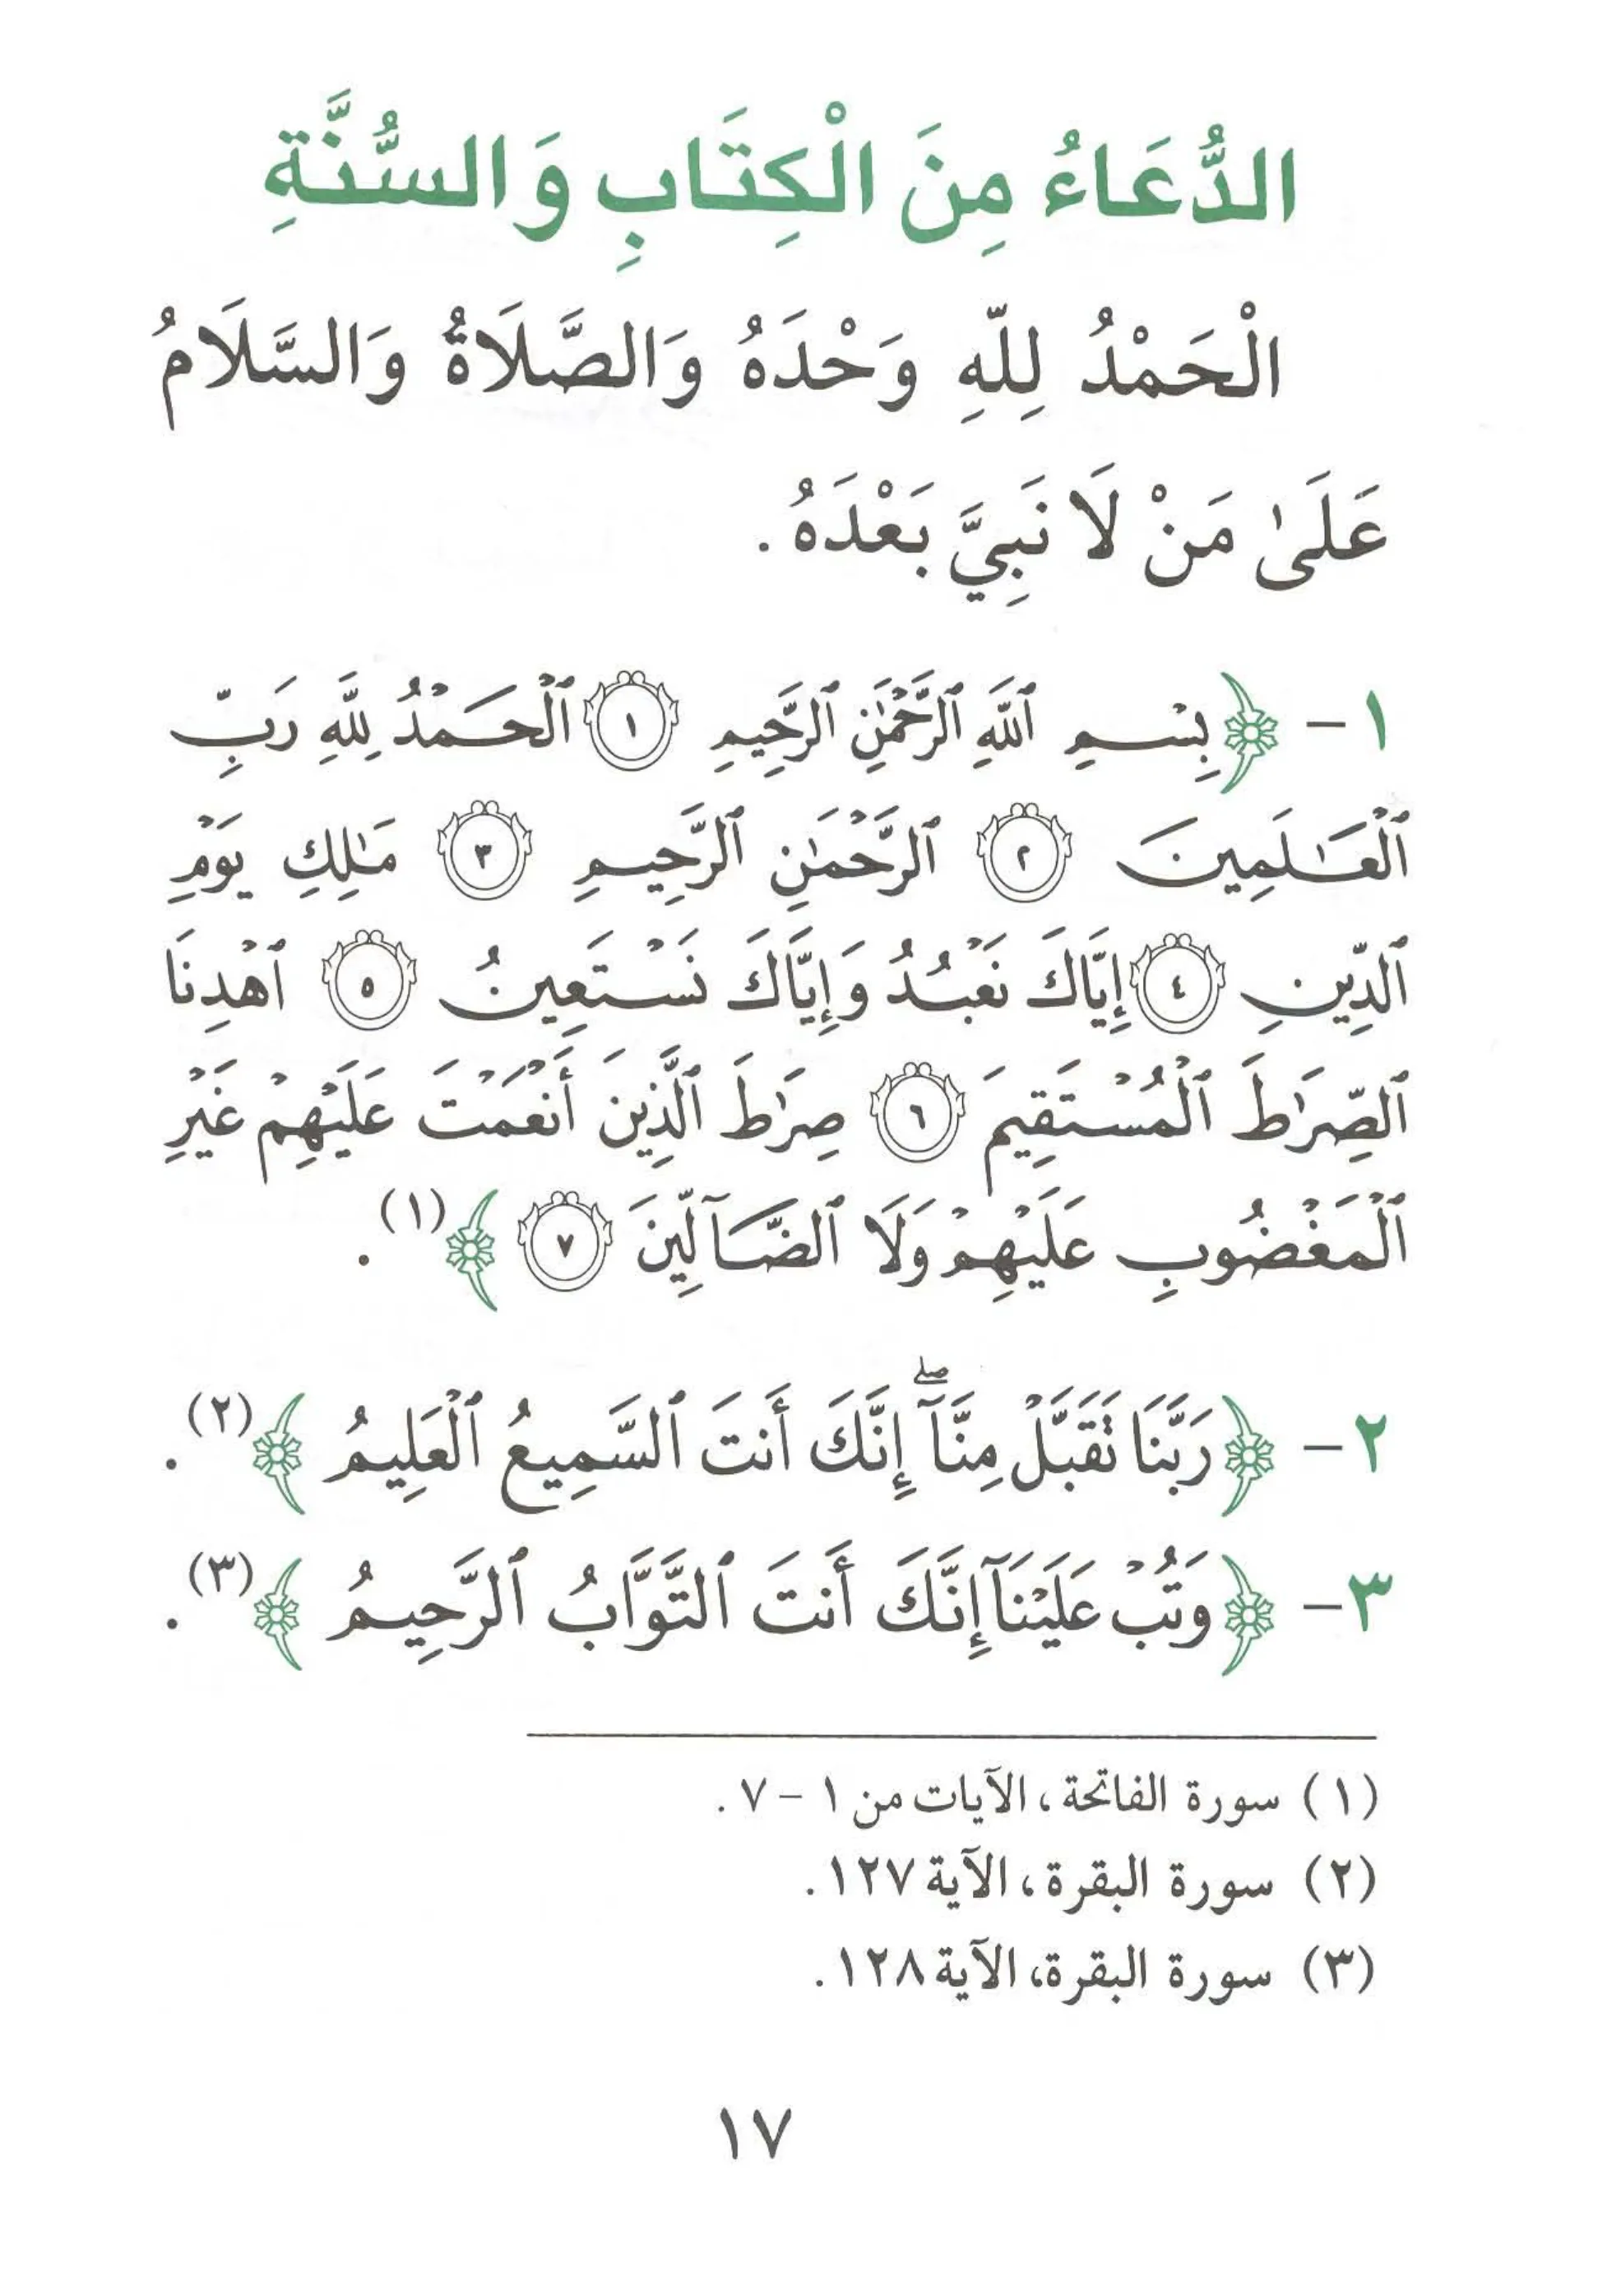 الدُّعَاءُ مِنَ الْكِتَابِ وَالسُّنَّةِ
الْحَمْدُ لِلّهِ وَحْدَهُ وَالصَّلَاةُ وَالسَّلَامُ
عَلَىٰ مَنْ لَا نَبِيَّ بَعْدَهُ.
١ - ﴿بِسْمِ ٱللَّهِ ٱلرَّحْمَٰنِ ٱلرَّحِيمِ ١ ٱلْحَمْدُ لِلَّهِ رَبِّ
ٱلْعَٰلَمِينَ ٢ ٱلرَّحْمَٰنِ ٱلرَّحِيمِ ٣ مَٰلِكِ يَوْمِ
ٱلدِّينِ ٤ إِيَّاكَ نَعْبُدُ وَإِيَّاكَ نَسْتَعِينُ ٥ ٱهْدِنَا
ٱلصِّرَٰطَ ٱلْمُسْتَقِيمَ ٦ صِرَٰطَ ٱلَّذِينَ أَنْعَمْتَ عَلَيْهِمْ غَيْرِ
ٱلْمَغْضُوبِ عَلَيْهِمْ وَلَا ٱلضَّآلِّينَ ٧﴾(١).
٢ - ﴿رَبَّنَا تَقَبَّلْ مِنَّآ ۖ إِنَّكَ أَنتَ ٱلسَّمِيعُ ٱلْعَلِيمُ﴾(٢).
٣ - ﴿وَتُبْ عَلَيْنَآ إِنَّكَ أَنتَ ٱلتَّوَّابُ ٱلرَّحِيمُ﴾(٣).
(١) سورة الفاتحة، الآيات من ١ - ٧.
(٢) سورة البقرة، الآية ١٢٧.
(٣) سورة البقرة، الآية ١٢٨.
١٧